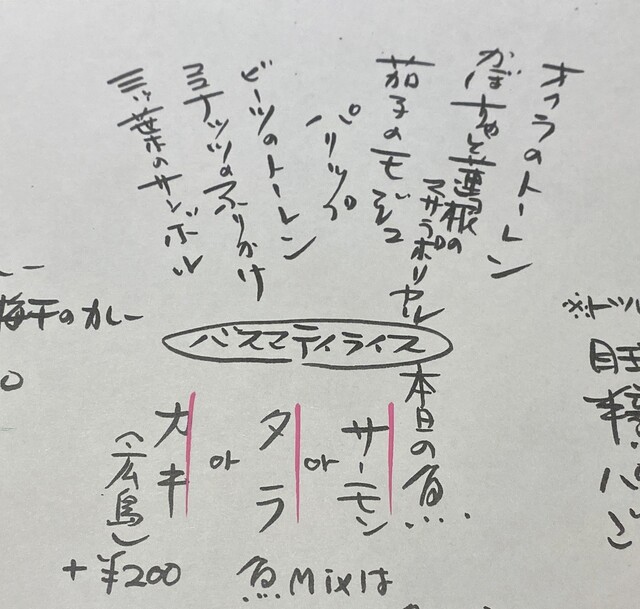 オクラのトーレン
かぼちゃと蓮根の
マサラポリヤル
茄子のモジュ
パリップ
ビーツのトーレン
ココナッツのふりかけ
三ツ葉のサンボル
バスマティライス
本日の魚…
サーモン
or
タラ
or
カキ
(広島)
+¥200
魚Mixは
梅干のカレー